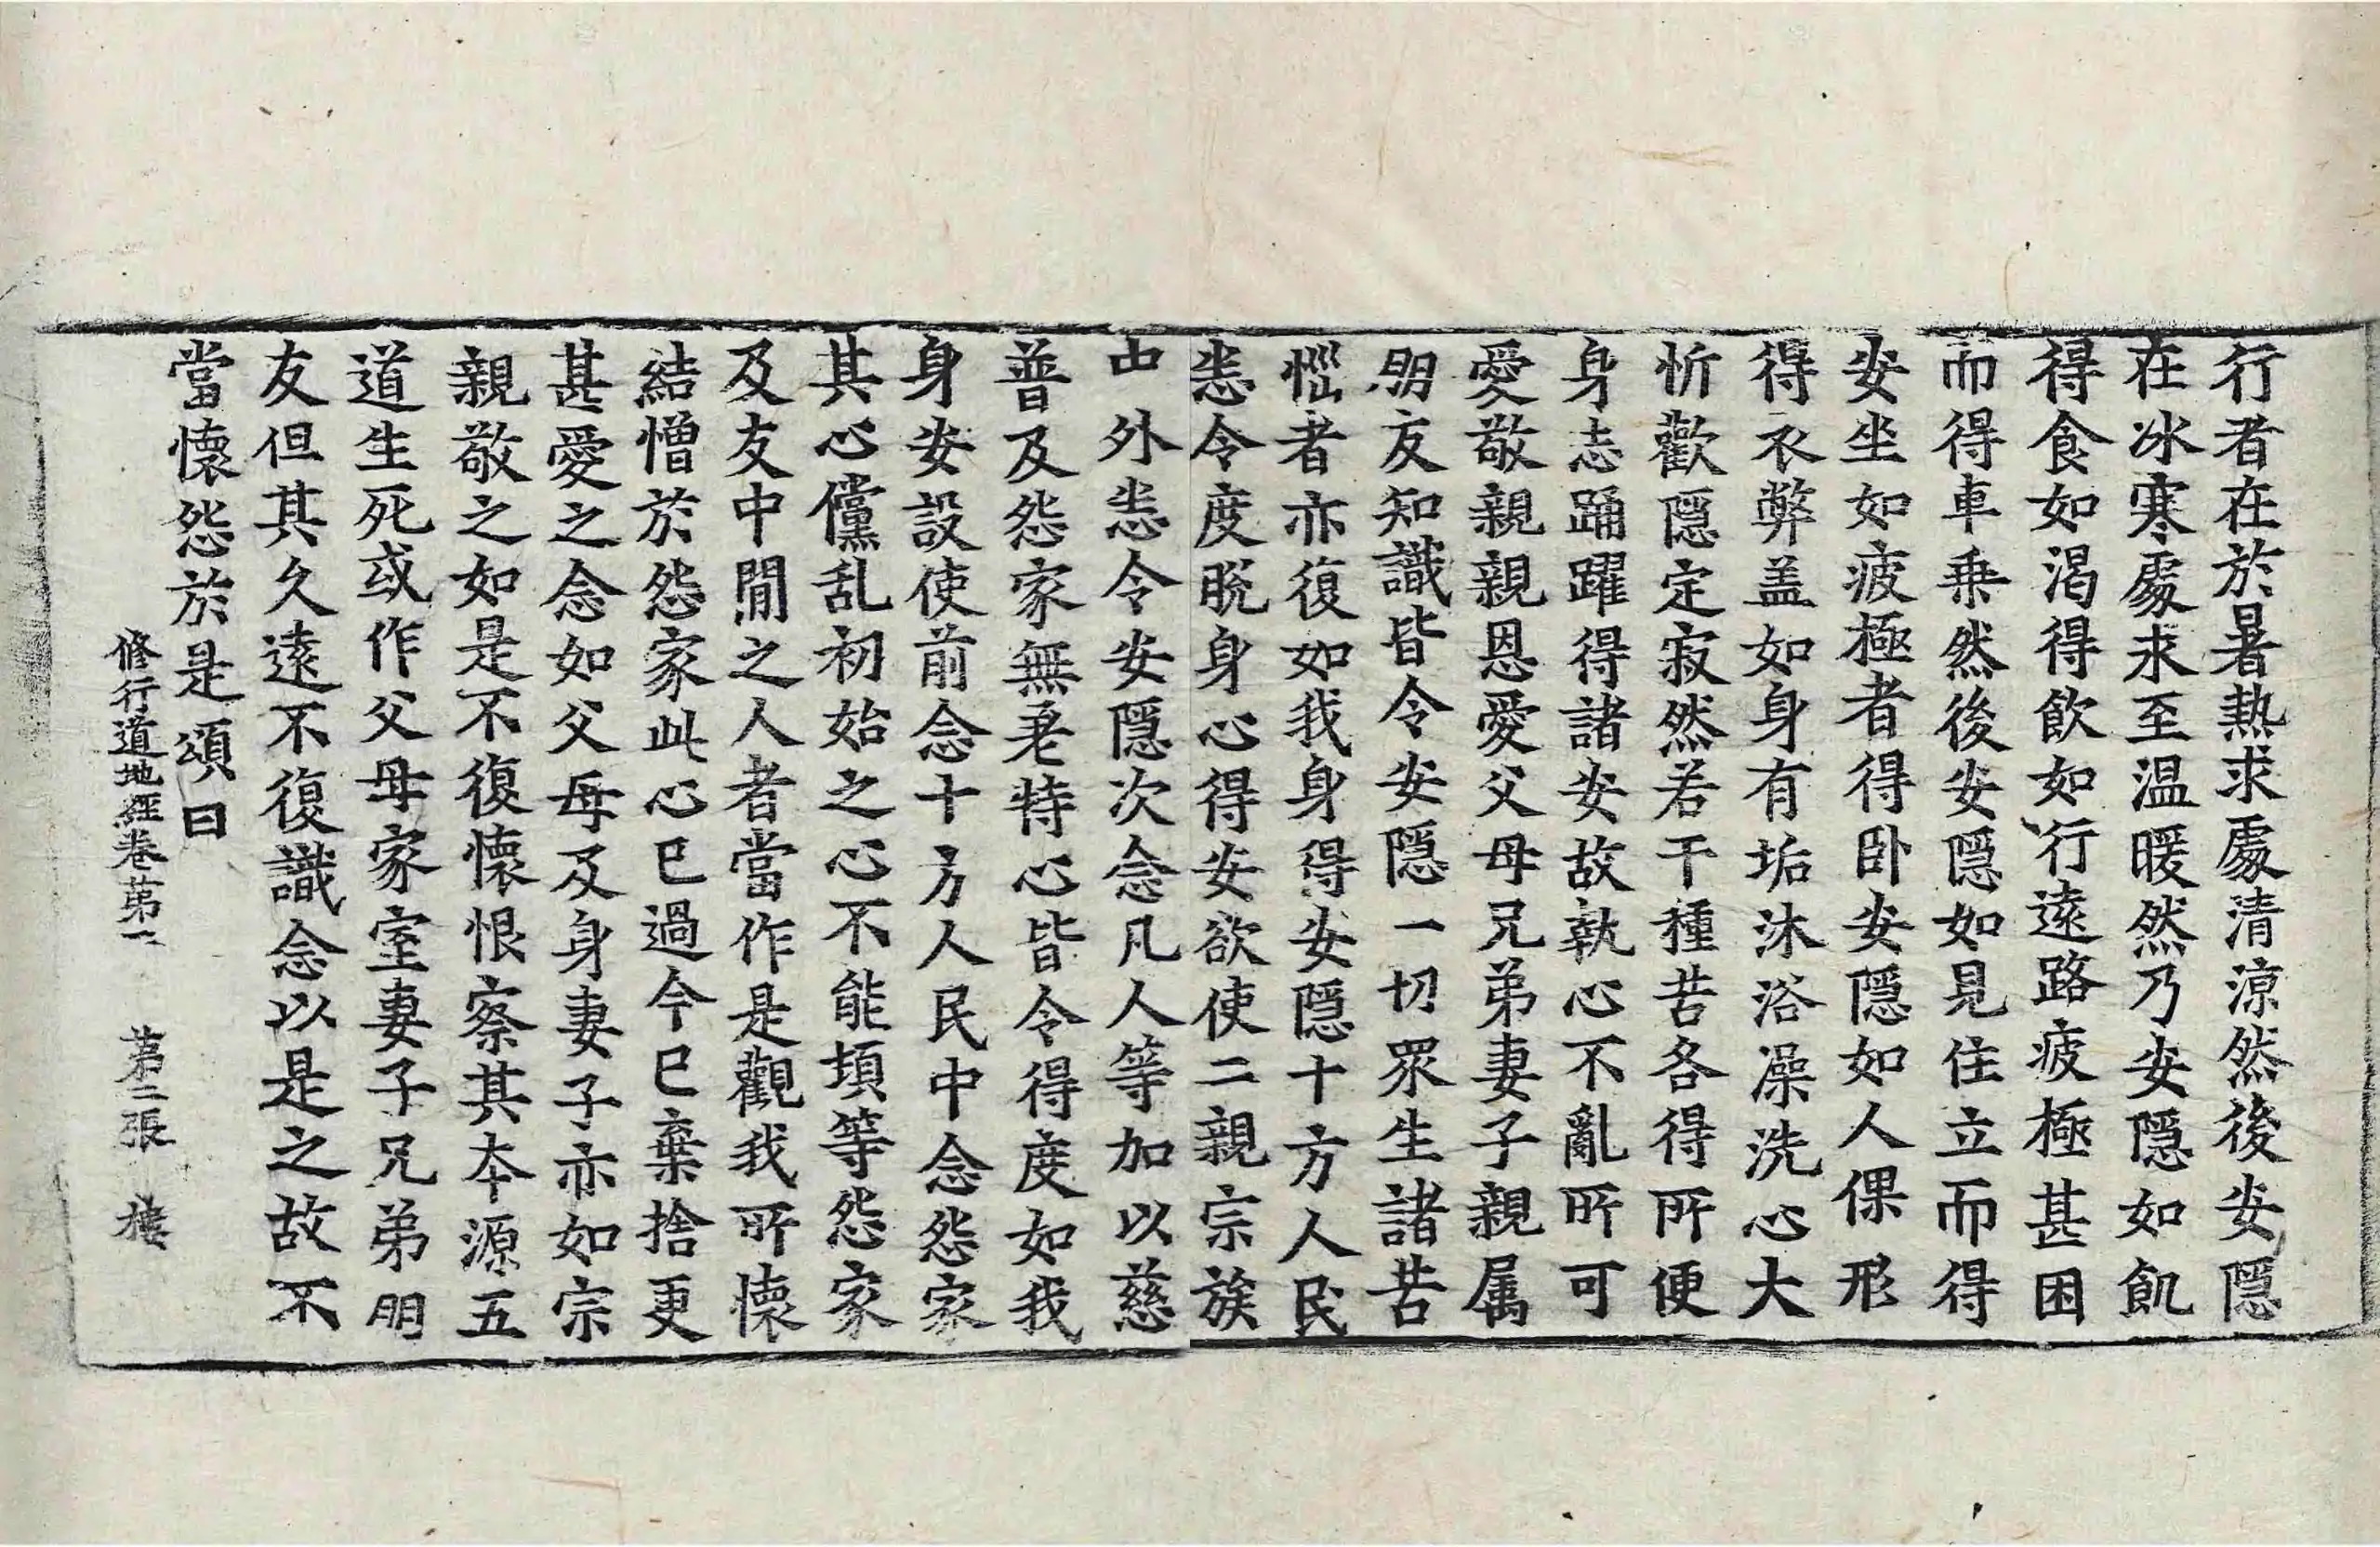 行者在於暑熱求處清涼然後安隱
在冰寒處求至温暖然乃安隱如飢
得食如渴得飲如行遠路疲極甚困
而得車乗然後安隱如見住立而得
安坐如疲極者得卧安隱如人倮形
得衣弊盖如身有垢沐浴澡洗心大
忻歡隱定寂然若干種苦各得所便
身志踊躍得諸安故執心不亂所可
愛敬親親恩愛父母兄弟妻子親属
朋友知識皆令安隱一切眾生諸苦
惱者亦復如我身得安隱十方人民
悉令度脫身心得安欲使二親宗族
中外悉令安隱次念凡人等加以慈
普及怨家無差特心皆令得度如我
身安設使前念十方人民中念怨家
其心儻乱初始之心不能頓等怨家
及友中閒之人者當作是觀我所懐
結憎於怨家此心已過今已棄捨更
甚愛之念如父母及身妻子亦如宗
親敬之如是不復懐恨察其本源五
道生死或作父母家室妻子兄弟朋
友但其久遠不復識念以是之故不
當懐怨於是頌曰
修行道地經卷第一 第二張 樓